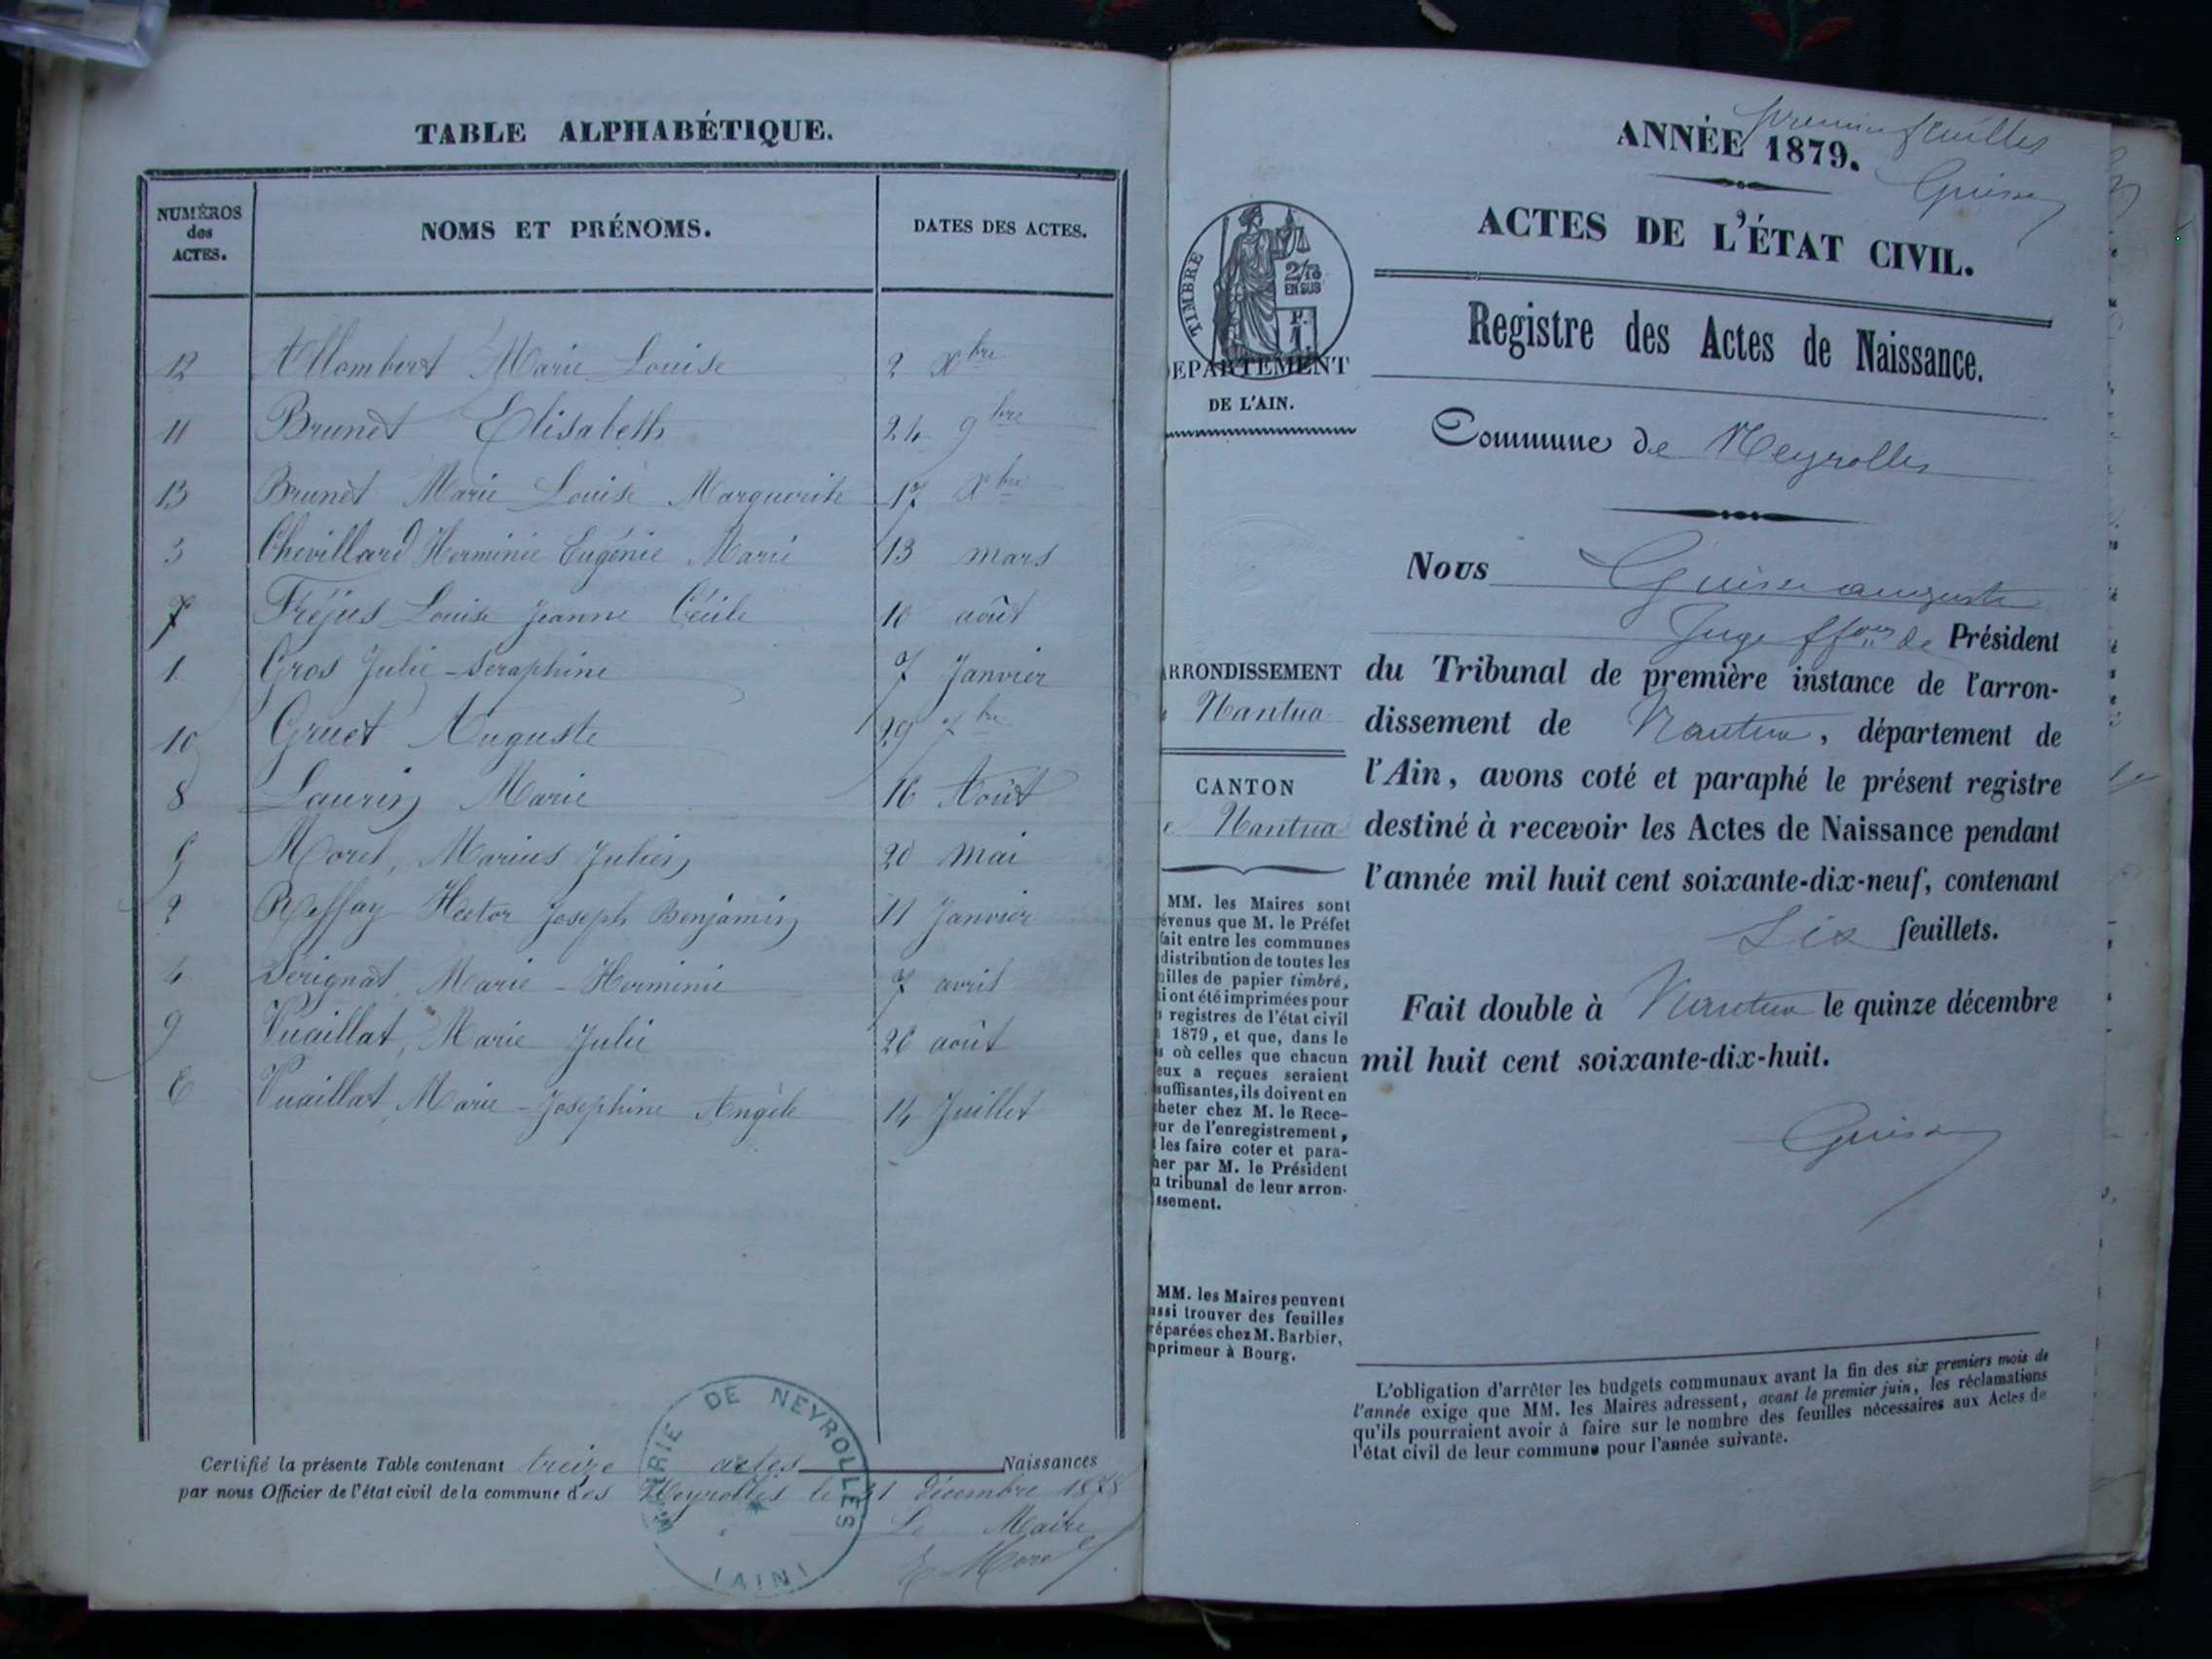 TABLE ALPHABÉTIQUE.
NUMÉROS
des
ACTES.
NOMS ET PRÉNOMS.
DATES DES ACTES.
12 Allombert Marie Louise 2 Xbre
11 Brunet Elisabeth 24 9bre
13 Brunet Marie Louise Marguerite 17 Xbre
3 Chevillard Herminie Eugénie Marie 13 mars
7 Fréjus Louise Jeanne Cécile 10 août
1 Gros Julie-Seraphine 7 Janvier
10 Gruet Auguste 29 7bre
8 Laurin Marie 16 Août
5 Morel, Marius Julien 20 mai
2 Reffay Hector Joseph Benjamin 11 Janvier
4 Sérignat, Marie-Herminie 7 avril
9 Vuaillat, Marie Julie 26 août
6 Vuaillat, Marie-Josephine Angèle 14 Juillet
Certifié la présente Table contenant treize actes Naissances
par nous Officier de l'état civil de la commune des Neyrolles le 31 décembre 1878
Le Maire
E Morel
MAIRIE DE NEYROLLES
(AIN)
premier feuillet
ANNÉE 1879.
Guisse
ACTES DE L'ÉTAT CIVIL.
TIMBRE
2/10
EN SUS
F.
1.
Registre des Actes de Naissance.
EPARTEMENT
DE L'AIN.
Commune de Neyrolles
Nous Guisse auguste
Juge ffons de Président
du Tribunal de première instance de l'arron-
dissement de Nantua, département de
l'Ain, avons coté et paraphé le présent registre
destiné à recevoir les Actes de Naissance pendant
l'année mil huit cent soixante-dix-neuf, contenant
Six feuillets.
Fait double à Nantua le quinze décembre
mil huit cent soixante-dix-huit.
Guisse
RRONDISSEMENT
Nantua
CANTON
e Nantua
MM. les Maires sont
évenus que M. le Préfet
fait entre les communes
distribution de toutes les
illes de papier timbré,
i ont été imprimées pour
registres de l'état civil
1879, et que, dans le
s où celles que chacun
eux a reçues seraient
suffisantes, ils doivent en
heter chez M. le Rece-
ur de l'enregistrement,
les faire coter et para-
her par M. le Président
u tribunal de leur arron-
ssement.
MM. les Maires peuvent
ussi trouver des feuilles
réparées chez M. Barbier,
mprimeur à Bourg.
L'obligation d'arrêter les budgets communaux avant la fin des six premiers mois de
l'année exige que MM. les Maires adressent, avant le premier juin, les réclamations
qu'ils pourraient avoir à faire sur le nombre des feuilles nécessaires aux Actes de
l'état civil de leur commune pour l'année suivante.